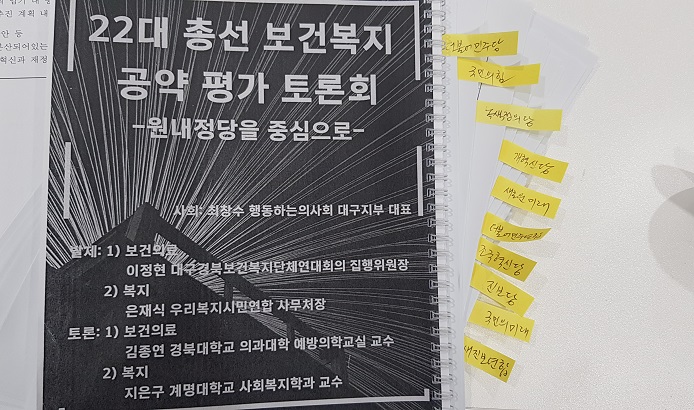 22대 총선 보건복지
공약 평가 토론회
-원내정당을 중심으로-
사회: 최창수 행동하는의사회 대구지부 대표
발제: 1) 보건의료
이정현 대구경북보건복지단체연대회의 집행위원장
2) 복지
은재식 우리복지시민연합 사무처장
토론: 1) 보건의료
김종연 경북대학교 의과대학 예방의학교실 교수
2) 복지
지은구 계명대학교 사회복지학과 교수
더불어민주당
국민의힘
녹색정의당
개혁신당
새로운미래
조국혁신당
진보당
국민의미래
새진보연합